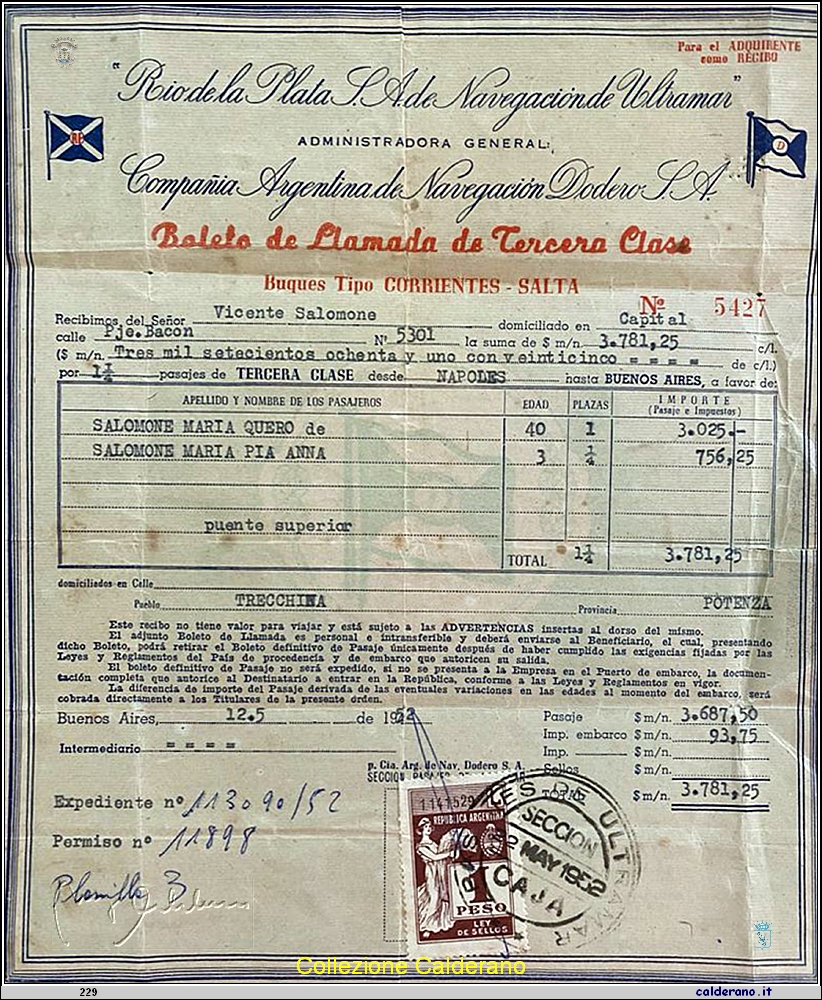 Para el ADQUIRENTE
como RECIBO
"Rio de la Plata S.A. de Navegación de Ultramar"
RP
ADMINISTRADORA GENERAL:
D
Compañia Argentina de Navegación Dodero S.A.
Boleto de Llamada de Tercera Clase
Buques Tipo CORRIENTES - SALTA
Nº 5427
Recibimos del Señor Vicente Salomone domiciliado en Capital
calle Pje.Bacon Nº 5301 la suma de $ m/n. 3.781,25 c/l.
($ m/n. Tres mil setecientos ochenta y uno con veinticinco = = = = de c/l.)
por 1¼ pasajes de TERCERA CLASE desde NAPOLES hasta BUENOS AIRES, a favor de:
APELLIDO Y NOMBRE DE LOS PASAJEROS EDAD PLAZAS IMPORTE
(Pasaje e Impuestos)
SALOMONE MARIA QUERO de 40 1 3.025.-
SALOMONE MARIA PIA ANNA 3 ¼ 756,25
puente superior
TOTAL 1¼ 3.781,25
domiciliados en Calle
Pueblo TRECCHINA Provincia POTENZA
Este recibo no tiene valor para viajar y está sujeto a las ADVERTENCIAS insertas al dorso del mismo.
El adjunto Boleto de Llamada es personal e intransferible y deberá enviarse al Beneficiario, el cual, presentando
dicho Boleto, podrá retirar el Boleto definitivo de Pasaje únicamente después de haber cumplido las exigencias fijadas por las
Leyes y Reglamentos del País de procedencia y de embarco que autoricen su salida.
El boleto definitivo de Pasaje no será expedido, si no se presenta a la Empresa en el Puerto de embarco, la documen-
tación completa que autorice al Destinatario a entrar en la República, conforme a las Leyes y Reglamentos en vigor.
La diferencia de importe del Pasaje derivada de las eventuales variaciones en las edades al momento del embarco, será
cobrada directamente a los Titulares de la presente órden.
Buenos Aires, 12.5 de 1952
Pasaje $ m/n. 3.687,50
Imp. embarco $ m/n. 93,75
Intermediario = = = =
Imp. $ m/n.
p. Cía. Arg. de Nav. Dodero S. A.
Sellos $ m/n.
$ m/n. 3.781,25
Expediente nº 113090/52
Permiso nº 11898
Planilla 3
REPUBLICA ARGENTINA
1 PESO
LEY
DE SELLOS
ULTRAMAR
SECCION
MAY 1952
CAJA
Collezione Calderano
229
calderano.it